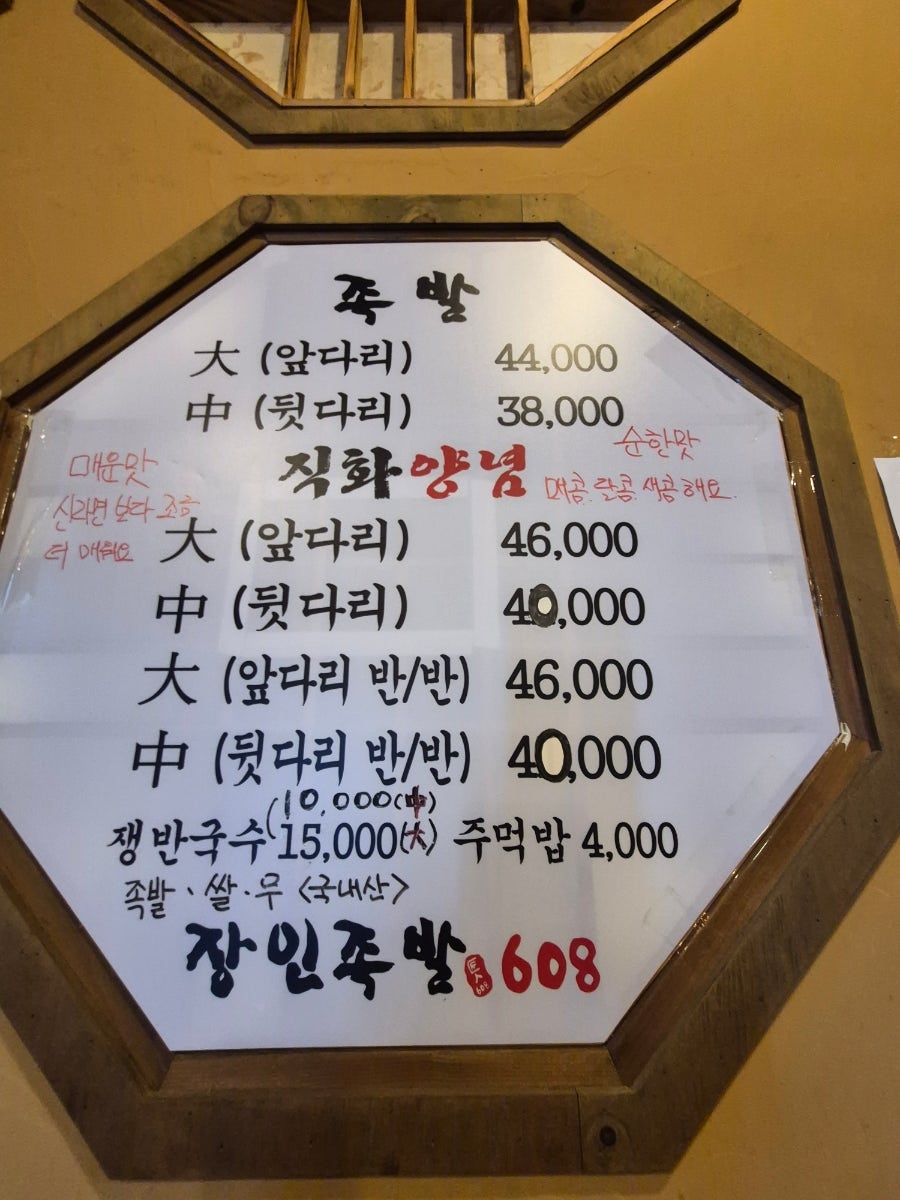 족발
大 (앞다리) 44,000
中 (뒷다리) 38,000
직화양념
순한맛
매콤 달콤 새콤 해요.
매운맛
신라면 보다 조금
더 매워요
大 (앞다리) 46,000
中 (뒷다리) 40,000
大 (앞다리 반/반) 46,000
中 (뒷다리 반/반) 40,000
(10,000(中)
쟁반국수 15,000(大) 주먹밥 4,000
족발 · 쌀 · 무 <국내산>
장인족발 608